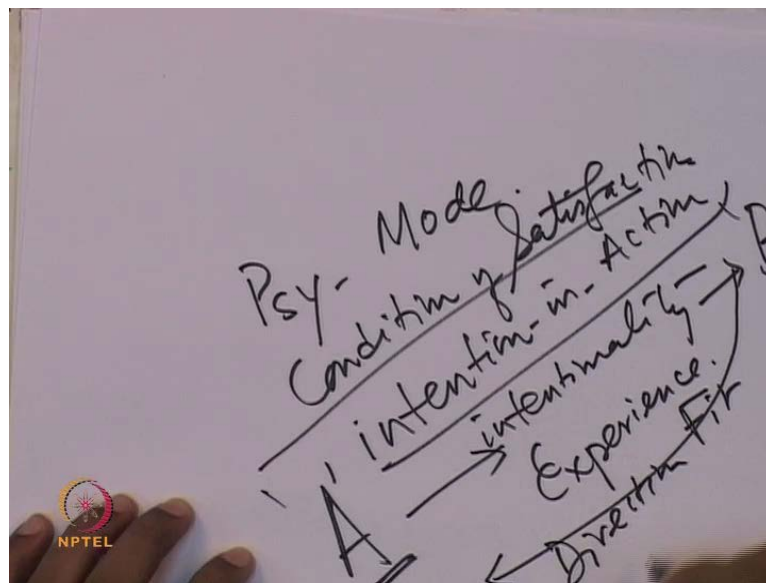 Psy- Mode.
Condition of Satisfaction
intention-in-Action
'A' intentionality
Experience.
Direction Fit
NPTEL